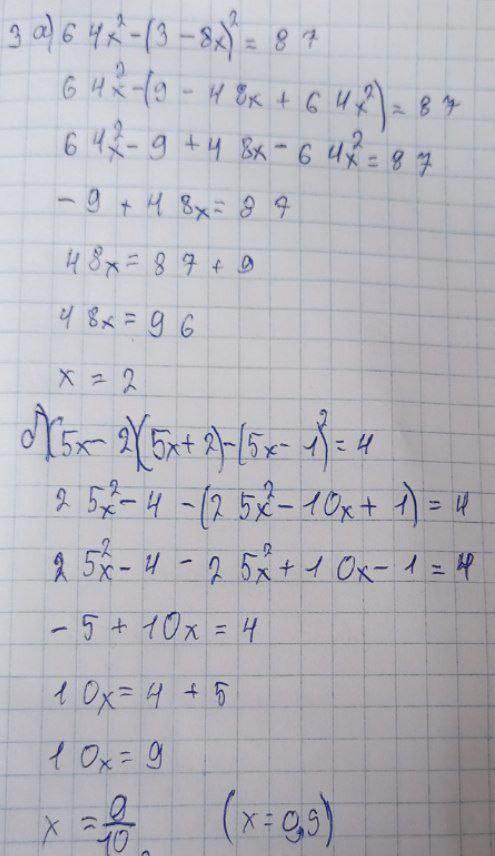 3 а) 64x² - (3 - 8x)² = 87
64x² - (9 - 48x + 64x²) = 87
64x² - 9 + 48x - 64x² = 87
- 9 + 48x = 87
48x = 87 + 9
48x = 96
x = 2
б) (5x - 2)(5x + 2) - (5x - 1)² = 4
25x² - 4 - (25x² - 10x + 1) = 4
25x² - 4 - 25x² + 10x - 1 = 4
- 5 + 10x = 4
10x = 4 + 5
10x = 9
x = 9/10 (x = 0,9)